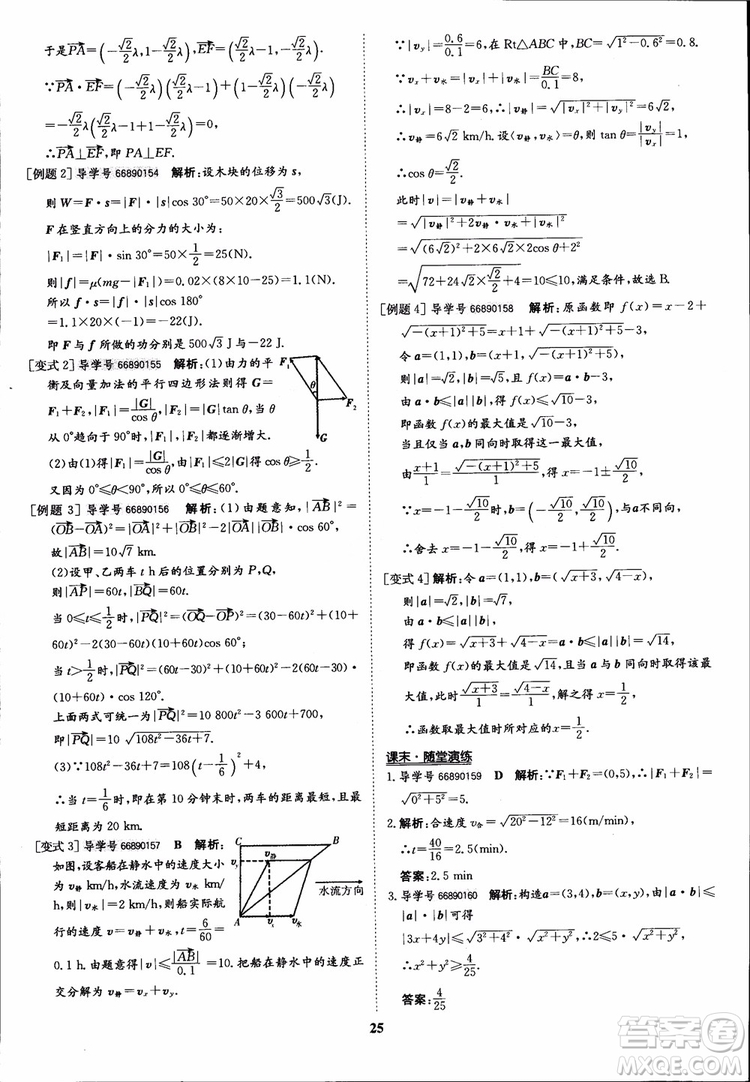 于是$\overrightarrow{PA}=\left(-\frac{\sqrt{2}}{2}\lambda,1-\frac{\sqrt{2}}{2}\lambda\right)$,$\overrightarrow{EF}=\left(\frac{\sqrt{2}}{2}\lambda-1,-\frac{\sqrt{2}}{2}\lambda\right)$.
∵$\overrightarrow{PA}\cdot\overrightarrow{EF}=\left(-\frac{\sqrt{2}}{2}\lambda\right)\left(\frac{\sqrt{2}}{2}\lambda-1\right)+\left(1-\frac{\sqrt{2}}{2}\lambda\right)\left(-\frac{\sqrt{2}}{2}\lambda\right)$
$=-\frac{\sqrt{2}}{2}\lambda\left(\frac{\sqrt{2}}{2}\lambda-1+1-\frac{\sqrt{2}}{2}\lambda\right)=0$,
∴$\overrightarrow{PA}\perp\overrightarrow{EF}$,即 PA⊥EF.
[例题2] 导学号 66890154 解析:设木块的位移为 s,
则 W=F·s=|F|·|s|cos 30°=50×20×$\frac{\sqrt{3}}{2}$=500$\sqrt{3}$(J).
F 在竖直方向上的分力的大小为:
|F₁|=|F|·sin 30°=50×$\frac{1}{2}$=25(N).
则|f|=μ(mg-|F₁|)=0.02×(8×10-25)=1.1(N).
所以 f·s=|f|·|s|cos 180°
=1.1×20×(-1)=-22(J).
即 F 与 f 所做的功分别为 500$\sqrt{3}$ J 与-22 J.
[变式2] 导学号 66890155 解析:(1)由力的平
衡及向量加法的平行四边形法则得 G=
F₁+F₂,|F₁|=$\frac{|G|}{\cos\theta}$,|F₂|=|G|tan θ,当 θ
从 0°趋向于 90°时,|F₁|,|F₂|都逐渐增大.
(2)由(1)得|F₁|=$\frac{|G|}{\cos\theta}$,由|F₁|≤2|G|,得 cos θ≥$\frac{1}{2}$.
又因为 0°≤θ<90°,所以 0°≤θ≤60°.
F₁
θ
F₂
G
[例题3] 导学号 66890156 解析:(1)由题意知,|$\overrightarrow{AB}$|²=
($\overrightarrow{OB}-\overrightarrow{OA}$)²=|$\overrightarrow{OA}$|²+|$\overrightarrow{OB}$|²-2|$\overrightarrow{OA}$||$\overrightarrow{OB}$|·cos 60°,
故|$\overrightarrow{AB}$|=10$\sqrt{7}$ km.
(2)设甲、乙两车 t h 后的位置分别为 P,Q,
则|$\overrightarrow{AP}$|=60t,|$\overrightarrow{BQ}$|=60t.
当 0≤t≤$\frac{1}{2}$时,|$\overrightarrow{PQ}$|²=($\overrightarrow{OQ}-\overrightarrow{OP}$)²=(30-60t)²+(10+
60t)²-2(30-60t)(10+60t)·cos 60°;
当 t>$\frac{1}{2}$时,|$\overrightarrow{PQ}$|²=(60t-30)²+(10+60t)²-2(60t-30)
(10+60t)·cos 120°.
上面两式可统一为|$\overrightarrow{PQ}$|²=10 800t²-3 600t+700,
即|$\overrightarrow{PQ}$|=10$\sqrt{108t^2-36t+7}$.
(3)∵108t²-36t+7=108$\left(t-\frac{1}{6}\right)^2$+4,
∴当 t=$\frac{1}{6}$时,即在第 10 分钟末时,两车的距离最短,且最
短距离为 20 km.
[变式3] 导学号 66890157 B 解析:
如图,设客船在静水中的速度大小
为|v静| km/h,水流速度为 v水 km/
h,则|v水|=2 km/h,则船实际航
行的速度 v=v静+v水,t=$\frac{6}{60}$=
0.1 h.由题意得|v|≤$\frac{|\overrightarrow{AB}|}{0.1}$=10.把船在静水中的速度正
交分解为 v静=vₓ+v_y,
C
B
v_y
v静
A
vₓ
v水
水流方向
∵|v_y|=$\frac{0.6}{0.1}$=6,在 Rt△ABC 中,BC=$\sqrt{1^2-0.6^2}$=0.8.
∵vₓ+v水=|vₓ|+|v水|=$\frac{BC}{0.1}$=8,
∴|vₓ|=8-2=6,∴|v静|=$\sqrt{|v_x|^2+|v_y|^2}$=6$\sqrt{2}$,
∴v静=6$\sqrt{2}$ km/h.设⟨v静,v水⟩=θ,则 tan θ=$\frac{|v_y|}{|v_x|}$=1,
∴cos θ=$\frac{\sqrt{2}}{2}$.
此时|v|=|v静+v水|
=$\sqrt{|v静|^2+2v静·v水+|v水|^2}$
=$\sqrt{(6\sqrt{2})^2+2\times6\sqrt{2}\times2\cos\theta+2^2}$
=$\sqrt{72+24\sqrt{2}\times\frac{\sqrt{2}}{2}+4}$=10≤10,满足条件,故选 B.
[例题4] 导学号 66890158 解析:原函数即 f(x)=x-2+
$\sqrt{-(x+1)^2+5}$=(x+1)+$\sqrt{-(x+1)^2+5}$-3,
令 a=(1,1),b=(x+1,$\sqrt{-(x+1)^2+5}$),
则|a|=$\sqrt{2}$,|b|=$\sqrt{5}$.
由 a·b≤|a||b|,得 f(x)≤$\sqrt{10}$-3,
即函数 f(x)的最大值是$\sqrt{10}$-3,
当且仅当 a,b 同向时取得这一最大值.
由$\frac{x+1}{1}=\frac{\sqrt{-(x+1)^2+5}}{1}$,得 x=-1±$\frac{\sqrt{10}}{2}$.
∵x=-1-$\frac{\sqrt{10}}{2}$时,b=$\left(-\frac{\sqrt{10}}{2},\frac{\sqrt{10}}{2}\right)$与 a 不同向,
∴舍去 x=-1-$\frac{\sqrt{10}}{2}$,∴x=-1+$\frac{\sqrt{10}}{2}$.
[变式4] 解析:令 a=(1,1),b=($\sqrt{x+3}$,$\sqrt{4-x}$),
则|a|=$\sqrt{2}$,|b|=$\sqrt{7}$,
由 a·b≤|a||b|=$\sqrt{14}$,
得 f(x)=$\sqrt{x+3}+\sqrt{4-x}$≤$\sqrt{14}$,
即函数 f(x)的最大值是$\sqrt{14}$,且当 a 与 b 同向时取得该最
大值,此时$\frac{\sqrt{x+3}}{1}=\frac{\sqrt{4-x}}{1}$,解之得 x=$\frac{1}{2}$,
∴函数取最大值时所对应的 x=$\frac{1}{2}$.
课末·随堂演练
1. 导学号 66890159 D 解析:∵F₁+F₂=(0,5),∴|F₁+F₂|=
$\sqrt{0^2+5^2}$=5.
2. 解析:合速度 v合=$\sqrt{20^2-12^2}$=16(m/min),
∴t=$\frac{40}{16}$=2.5(min).
答案:2.5 min
3. 导学号 66890160 解析:构造 a=(3,4),b=(x,y),由|a·b|≤
|a|·|b|可得
|3x+4y|≤$\sqrt{3^2+4^2}\cdot\sqrt{x^2+y^2}$,∴2≤5·$\sqrt{x^2+y^2}$,
∴x²+y²≥$\frac{4}{25}$.
答案:$\frac{4}{25}$
25
答案圈